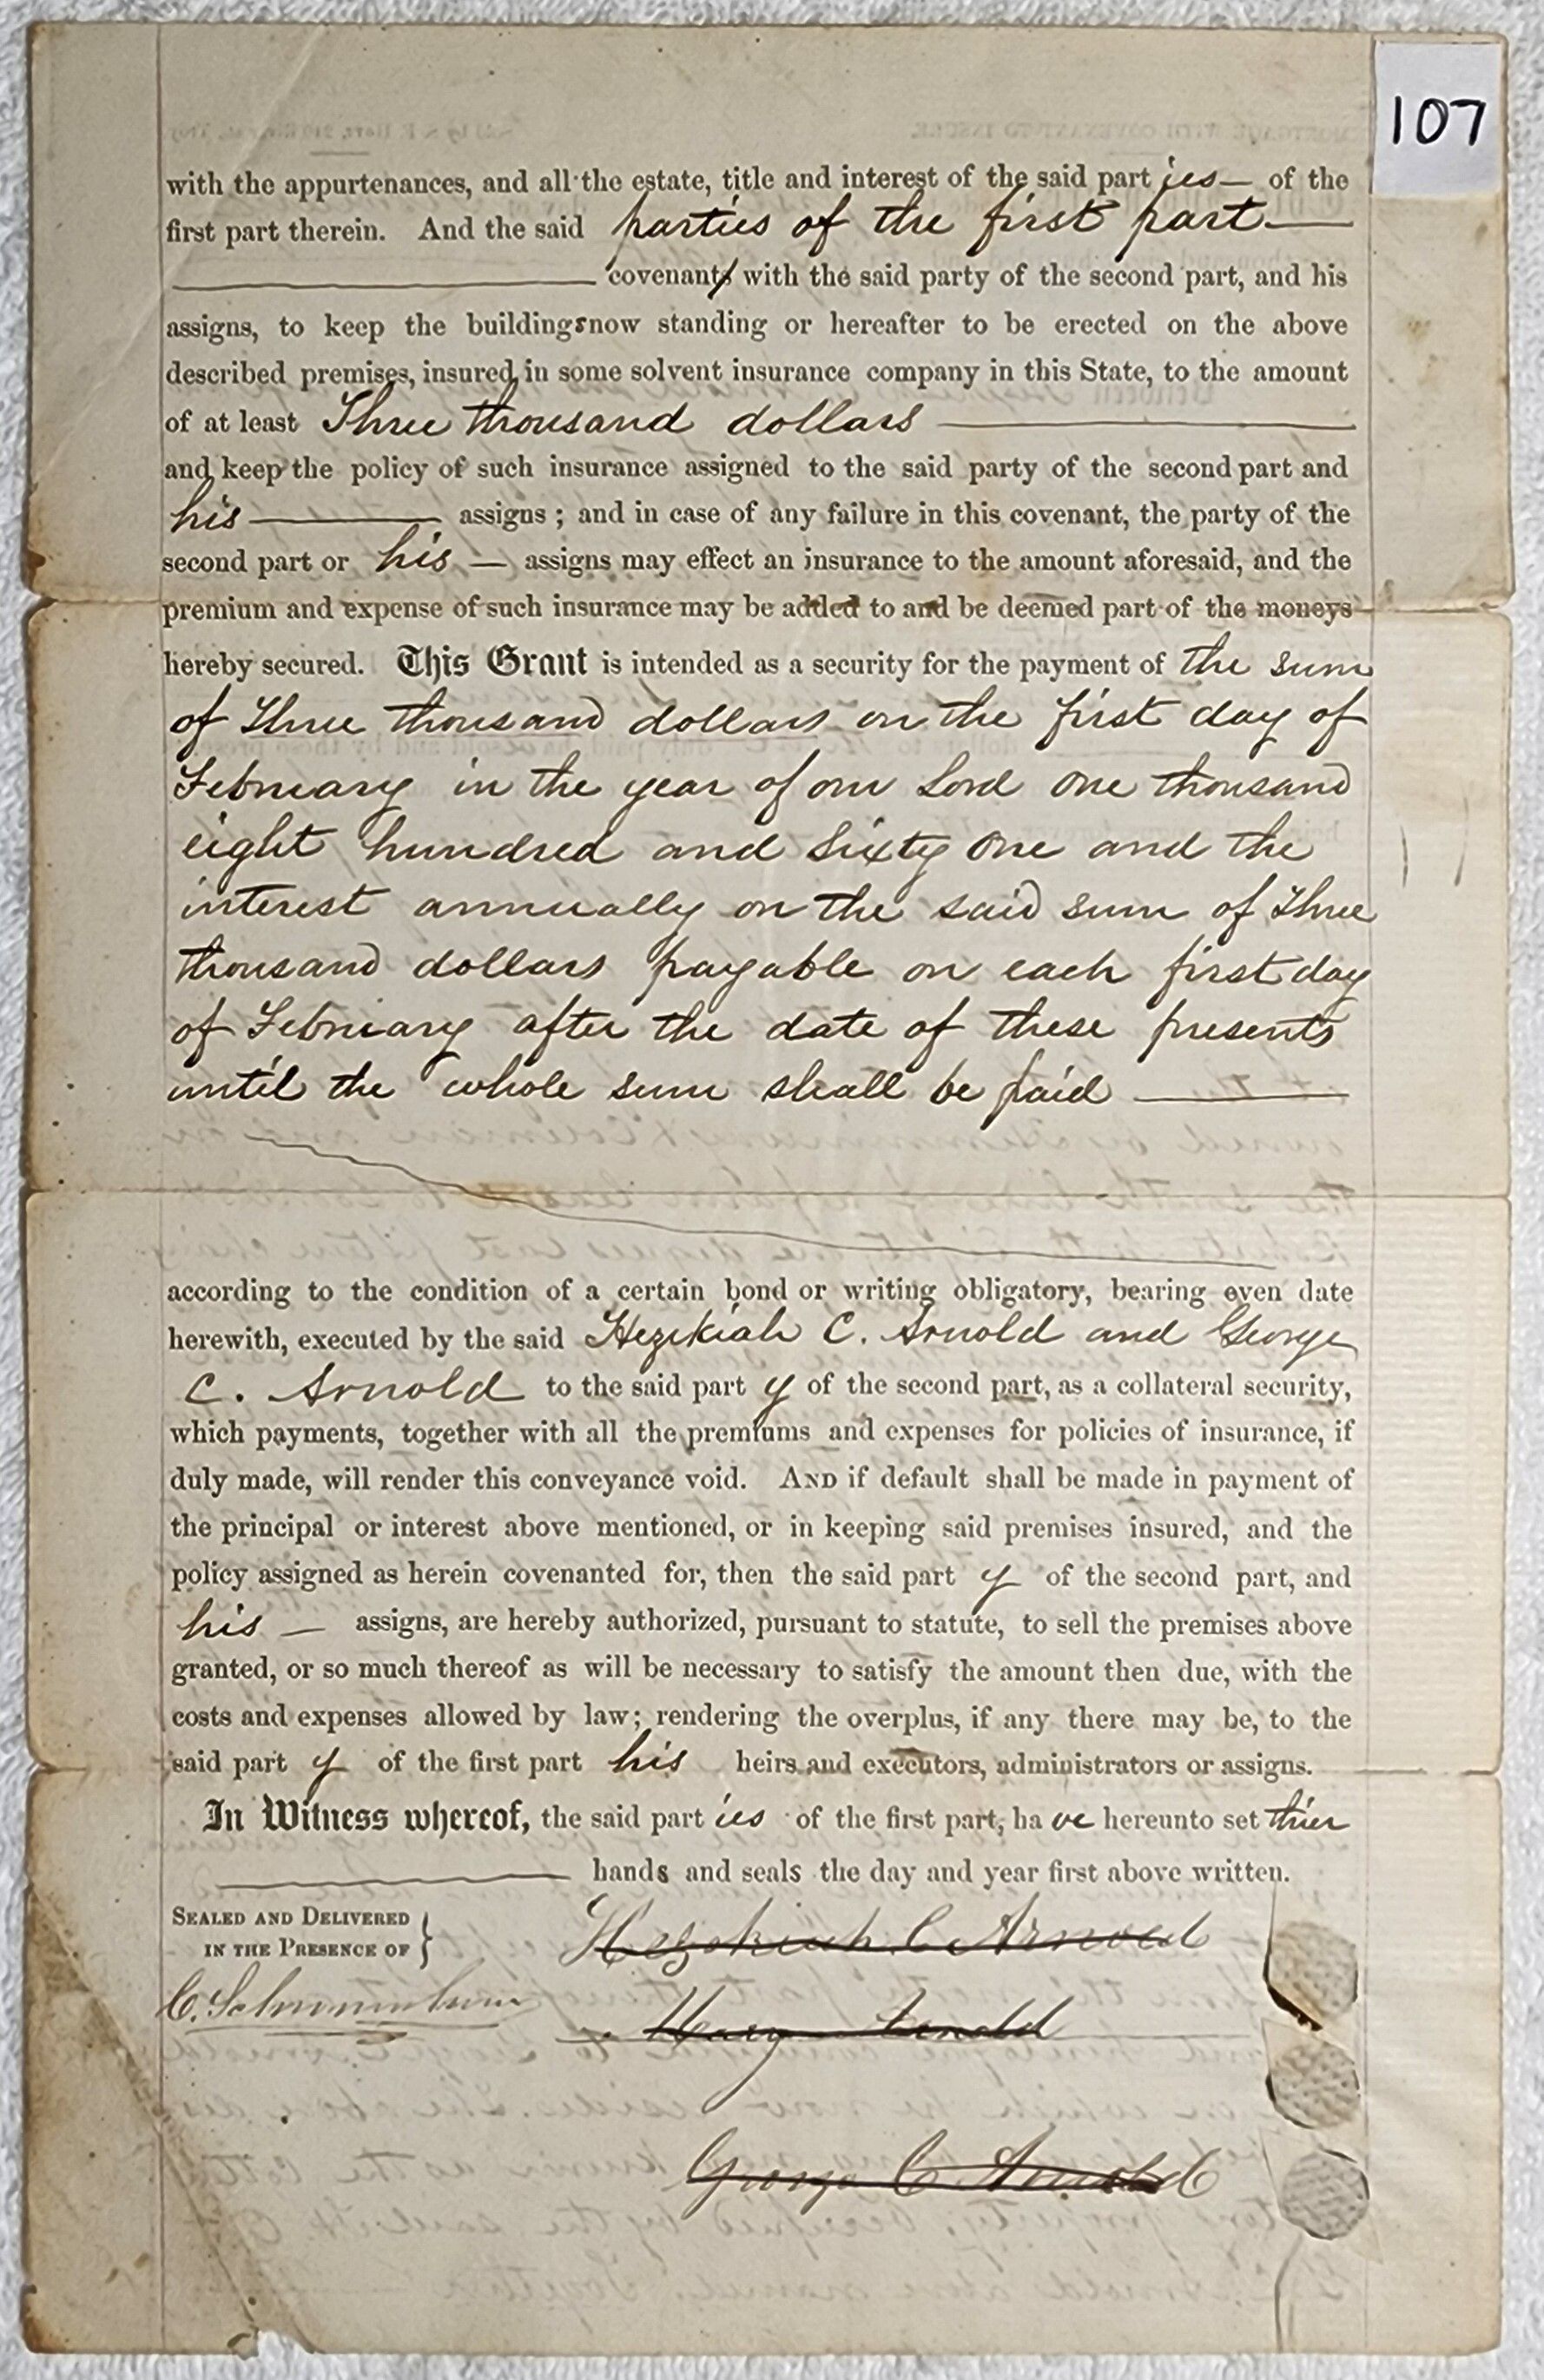 107
with the appurtenances, and all the estate, title and interest of the said part ies — of the
first part therein. And the said parties of the first part —
covenant with the said party of the second part, and his
assigns, to keep the buildings now standing or hereafter to be erected on the above
described premises, insured, in some solvent insurance company in this State, to the amount
of at least Three thousand dollars
and keep the policy of such insurance assigned to the said party of the second part and
his — assigns; and in case of any failure in this covenant, the party of the
second part or his — assigns may effect an insurance to the amount aforesaid, and the
premium and expense of such insurance may be added to and be deemed part of the moneys
hereby secured. This Grant is intended as a security for the payment of the sum
of Three thousand dollars on the first day of
February in the year of our Lord One thousand
eight hundred and Sixty One and the
interest annually on the said sum of Three
thousand dollars payable on each first day
of February after the date of these presents
until the whole sum shall be paid —
according to the condition of a certain bond or writing obligatory, bearing even date
herewith, executed by the said Hezekiah C. Arnold and George
C. Arnold to the said part y of the second part, as a collateral security,
which payments, together with all the premiums and expenses for policies of insurance, if
duly made, will render this conveyance void. AND if default shall be made in payment of
the principal or interest above mentioned, or in keeping said premises insured, and the
policy assigned as herein covenanted for, then the said part y of the second part, and
his — assigns, are hereby authorized, pursuant to statute, to sell the premises above
granted, or so much thereof as will be necessary to satisfy the amount then due, with the
costs and expenses allowed by law; rendering the overplus, if any there may be, to the
said part y of the first part his heirs and executors, administrators or assigns.
In Witness whereof, the said part ies of the first part, ha ve hereunto set thier
hands and seals the day and year first above written.
SEALED AND DELIVERED
IN THE PRESENCE OF
Hezekiah C Arnold
C.
Mary Arnold
George C Arnold